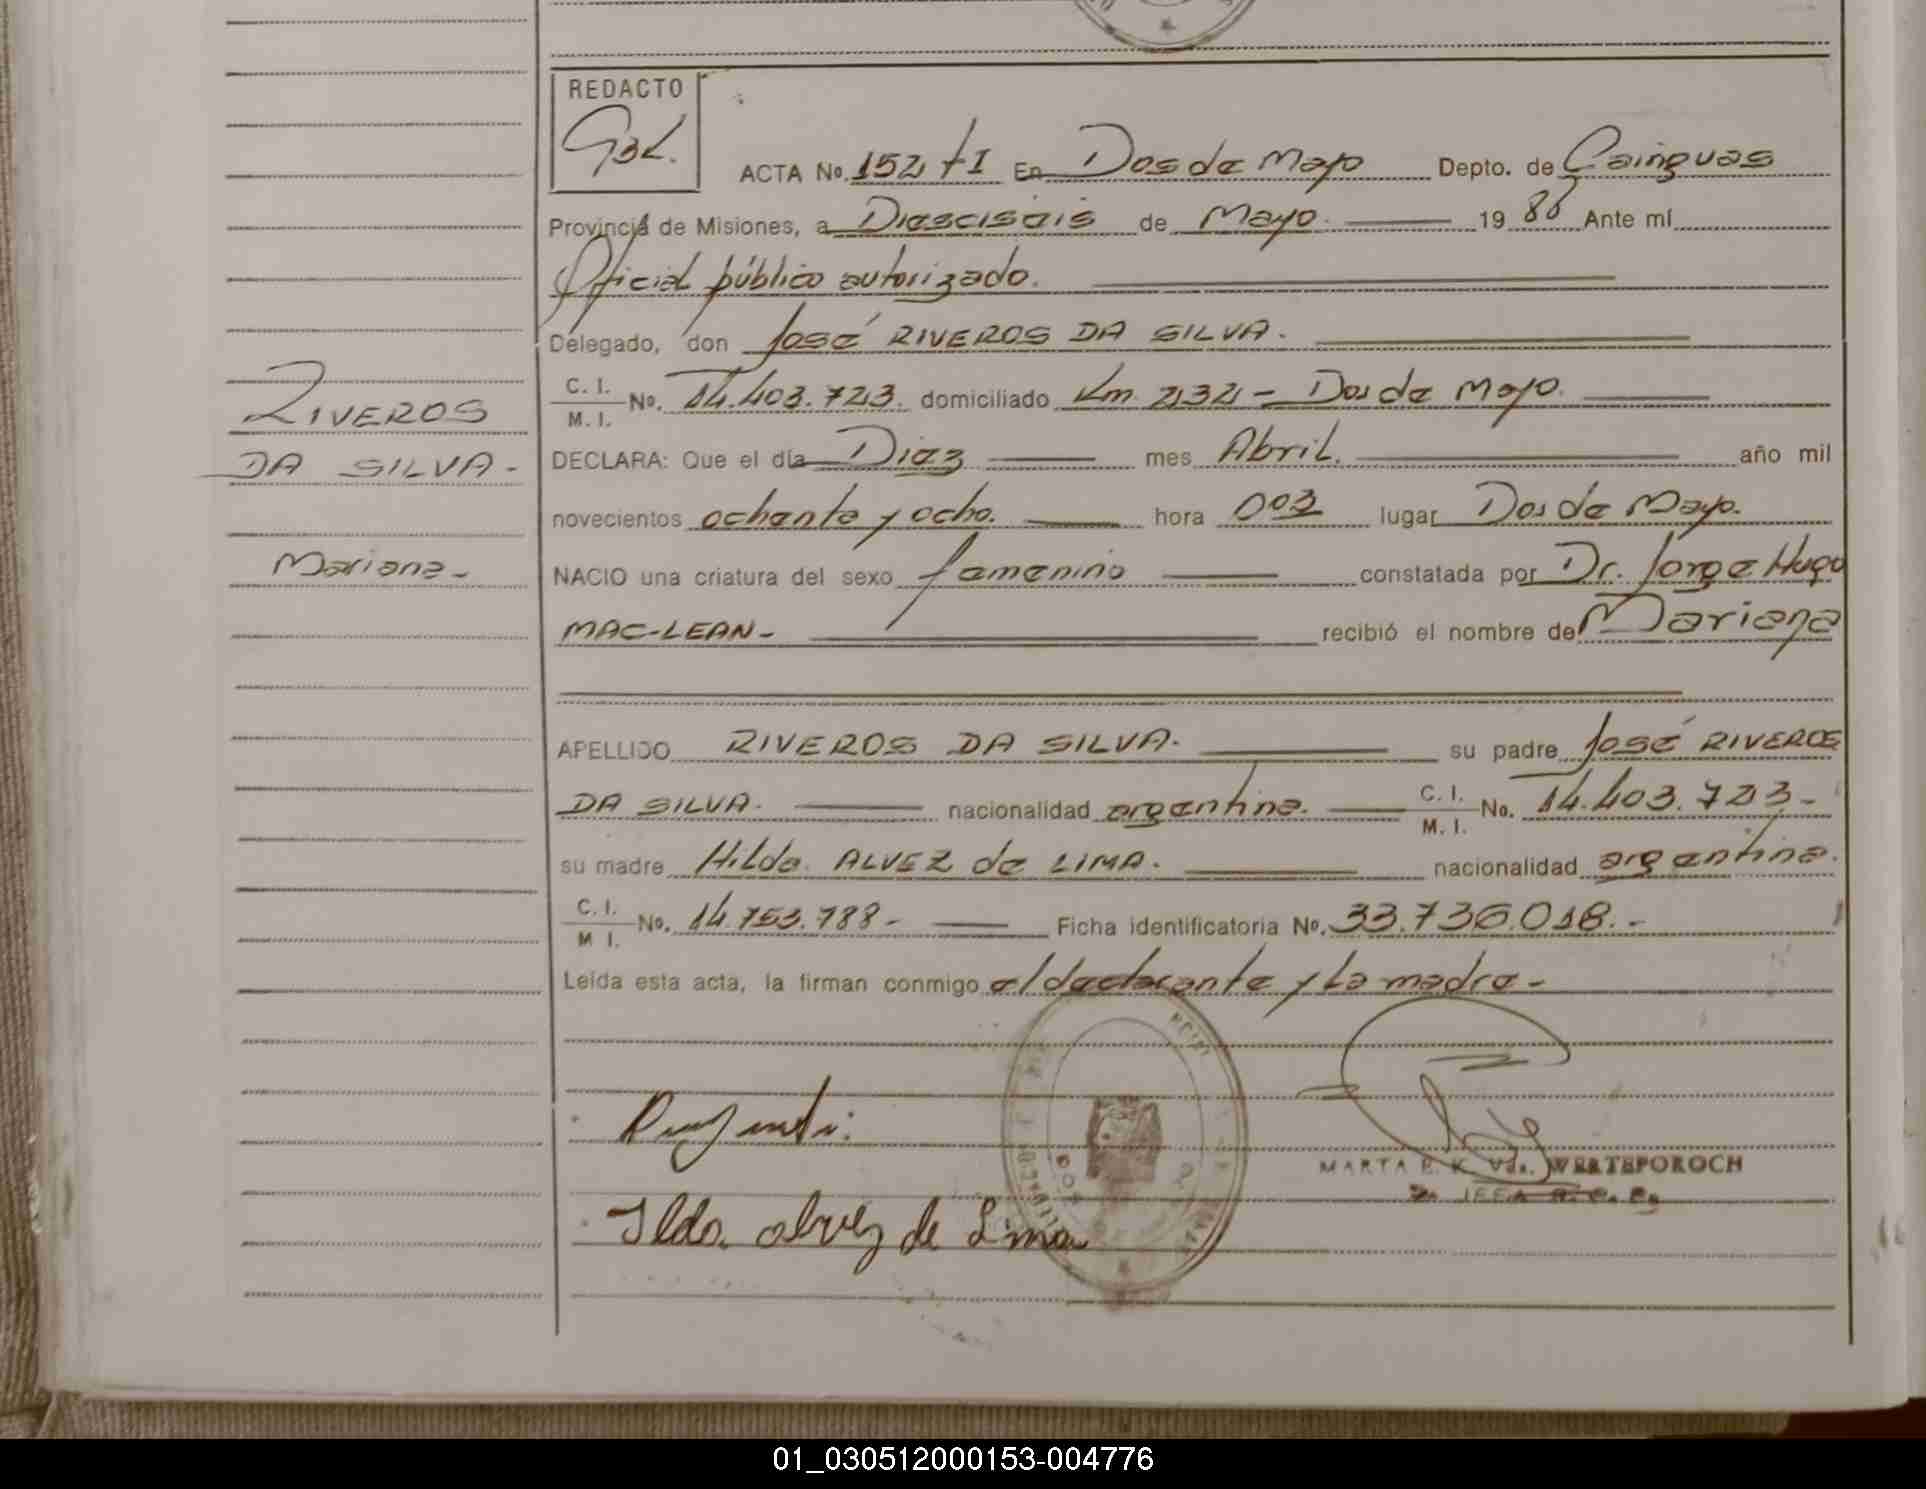 REDACTO
ACTA No. 152 tI En Dos de Mayo Depto. de Cainguas
Provincia de Misiones, a Dieciseis de Mayo. 19 88 Ante mí
Oficial público autorizado.
Delegado, don José RIVEROS DA SILVA.
C. I.
M. I. No. 14.403.723. domiciliado Km 232 - Dos de Mayo.
RIVEROS
DA SILVA -
DECLARA: Que el día Diez mes Abril. año mil
novecientos ochenta y ocho. hora 003 lugar Dos de Mayo.
Mariana -
NACIO una criatura del sexo femenino constatada por Dr. Jorge Hugo
MAC-LEAN - recibió el nombre de Mariana
APELLIDO RIVEROS DA SILVA. su padre José RIVEROS
DA SILVA. nacionalidad argentina. C. I.
M. I. No. 14.403.723 -
su madre Hilda. ALVEZ de LIMA. nacionalidad argentina.
C. I.
M I. No. 14.753.788 - Ficha identificatoria No. 33.736.018. -
Leída esta acta, la firman conmigo el declarante y la madre -
MARTA E. K. Vda. WERTEPOROCH
Ilda. alvez de Lima
01_030512000153-004776